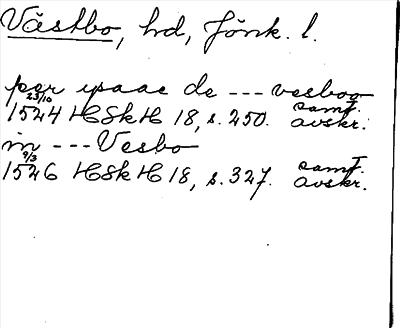 Västbo, hd, Jönk. l.
per ipaae de --- vesboo
23/10 samt.
1524 HSkH 18, s. 250. avskr.
in --- Vesbo
9/3 samt.
1526 HSkH 18, s. 327. avskr.